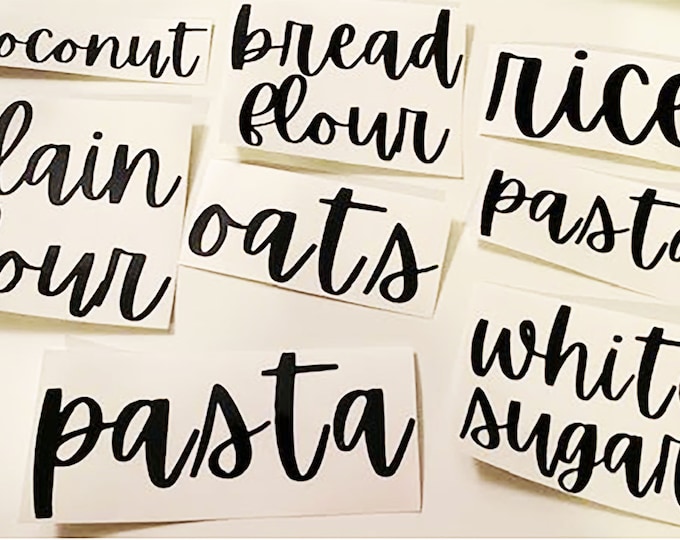 oconut
bread
flour
rice
lain
our
oats
pasta
pasta
whit
sugar